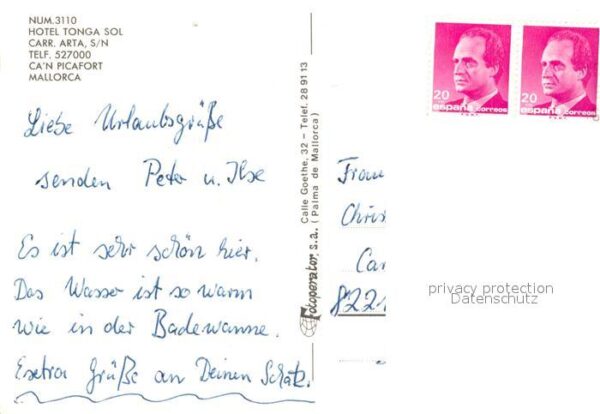 NUM.3110
HOTEL TONGA SOL
CARR. ARTA, S/N
TELF. 527000
CA'N PICAFORT
MALLORCA
Liebe Urlaubsgrüße
senden Peter u. Ilse
Es ist sehr schön hier.
Das Wasser ist so warm
wie in der Badewanne.
Exetra Grüße an Deinen Schatz.
Fotoperator, s.a.
Calle Goethe, 32 – Telef. 28 91 13
(Palma de Mallorca)
20
españa correos
20
españa correos
Frau
Chris
Car
822
privacy protection
Datenschutz